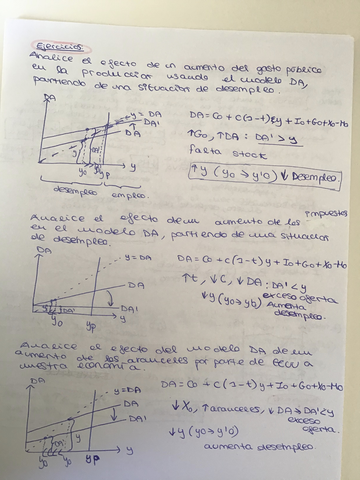 Ejercicios
Analice el efecto de un aumento del gasto público
en la producción usando el modelo DA,
partiendo de una situación de desempleo.
DA
y=DA
DA'
DA
DA=Co+c(1-t)y+Io+Go+Xo-Mo
↑Go, ↑DA: DA'>y
falta stock
↑y (yo→y'o) ↓Desempleo
yo
yp
y
desempleo
empleo.
Analice el efecto de un aumento de los impuestos
en el modelo DA, partiendo de una situación
de desempleo.
DA
y=DA
DA
DA'
DA=Co+c(1-t)y+Io+Go+Xo-Mo
↑t, ↓C, ↓DA: DA'<y
exceso oferta
↓y (yo→y'o)
Aumenta
desempleo.
yo
yp
y
Analice el efecto del modelo DA de un
aumento de los aranceles por parte de EEUU a
nuestra economía.
DA
y=DA
DA
DA'
DA=Co+c(1-t)y+Io+Go+Xo-Mo
↓Xo, ↑aranceles, ↓DA→DA'<y
exceso
oferta.
↓y (yo→y'o)
aumenta desempleo.
y'o
yo
yp
y